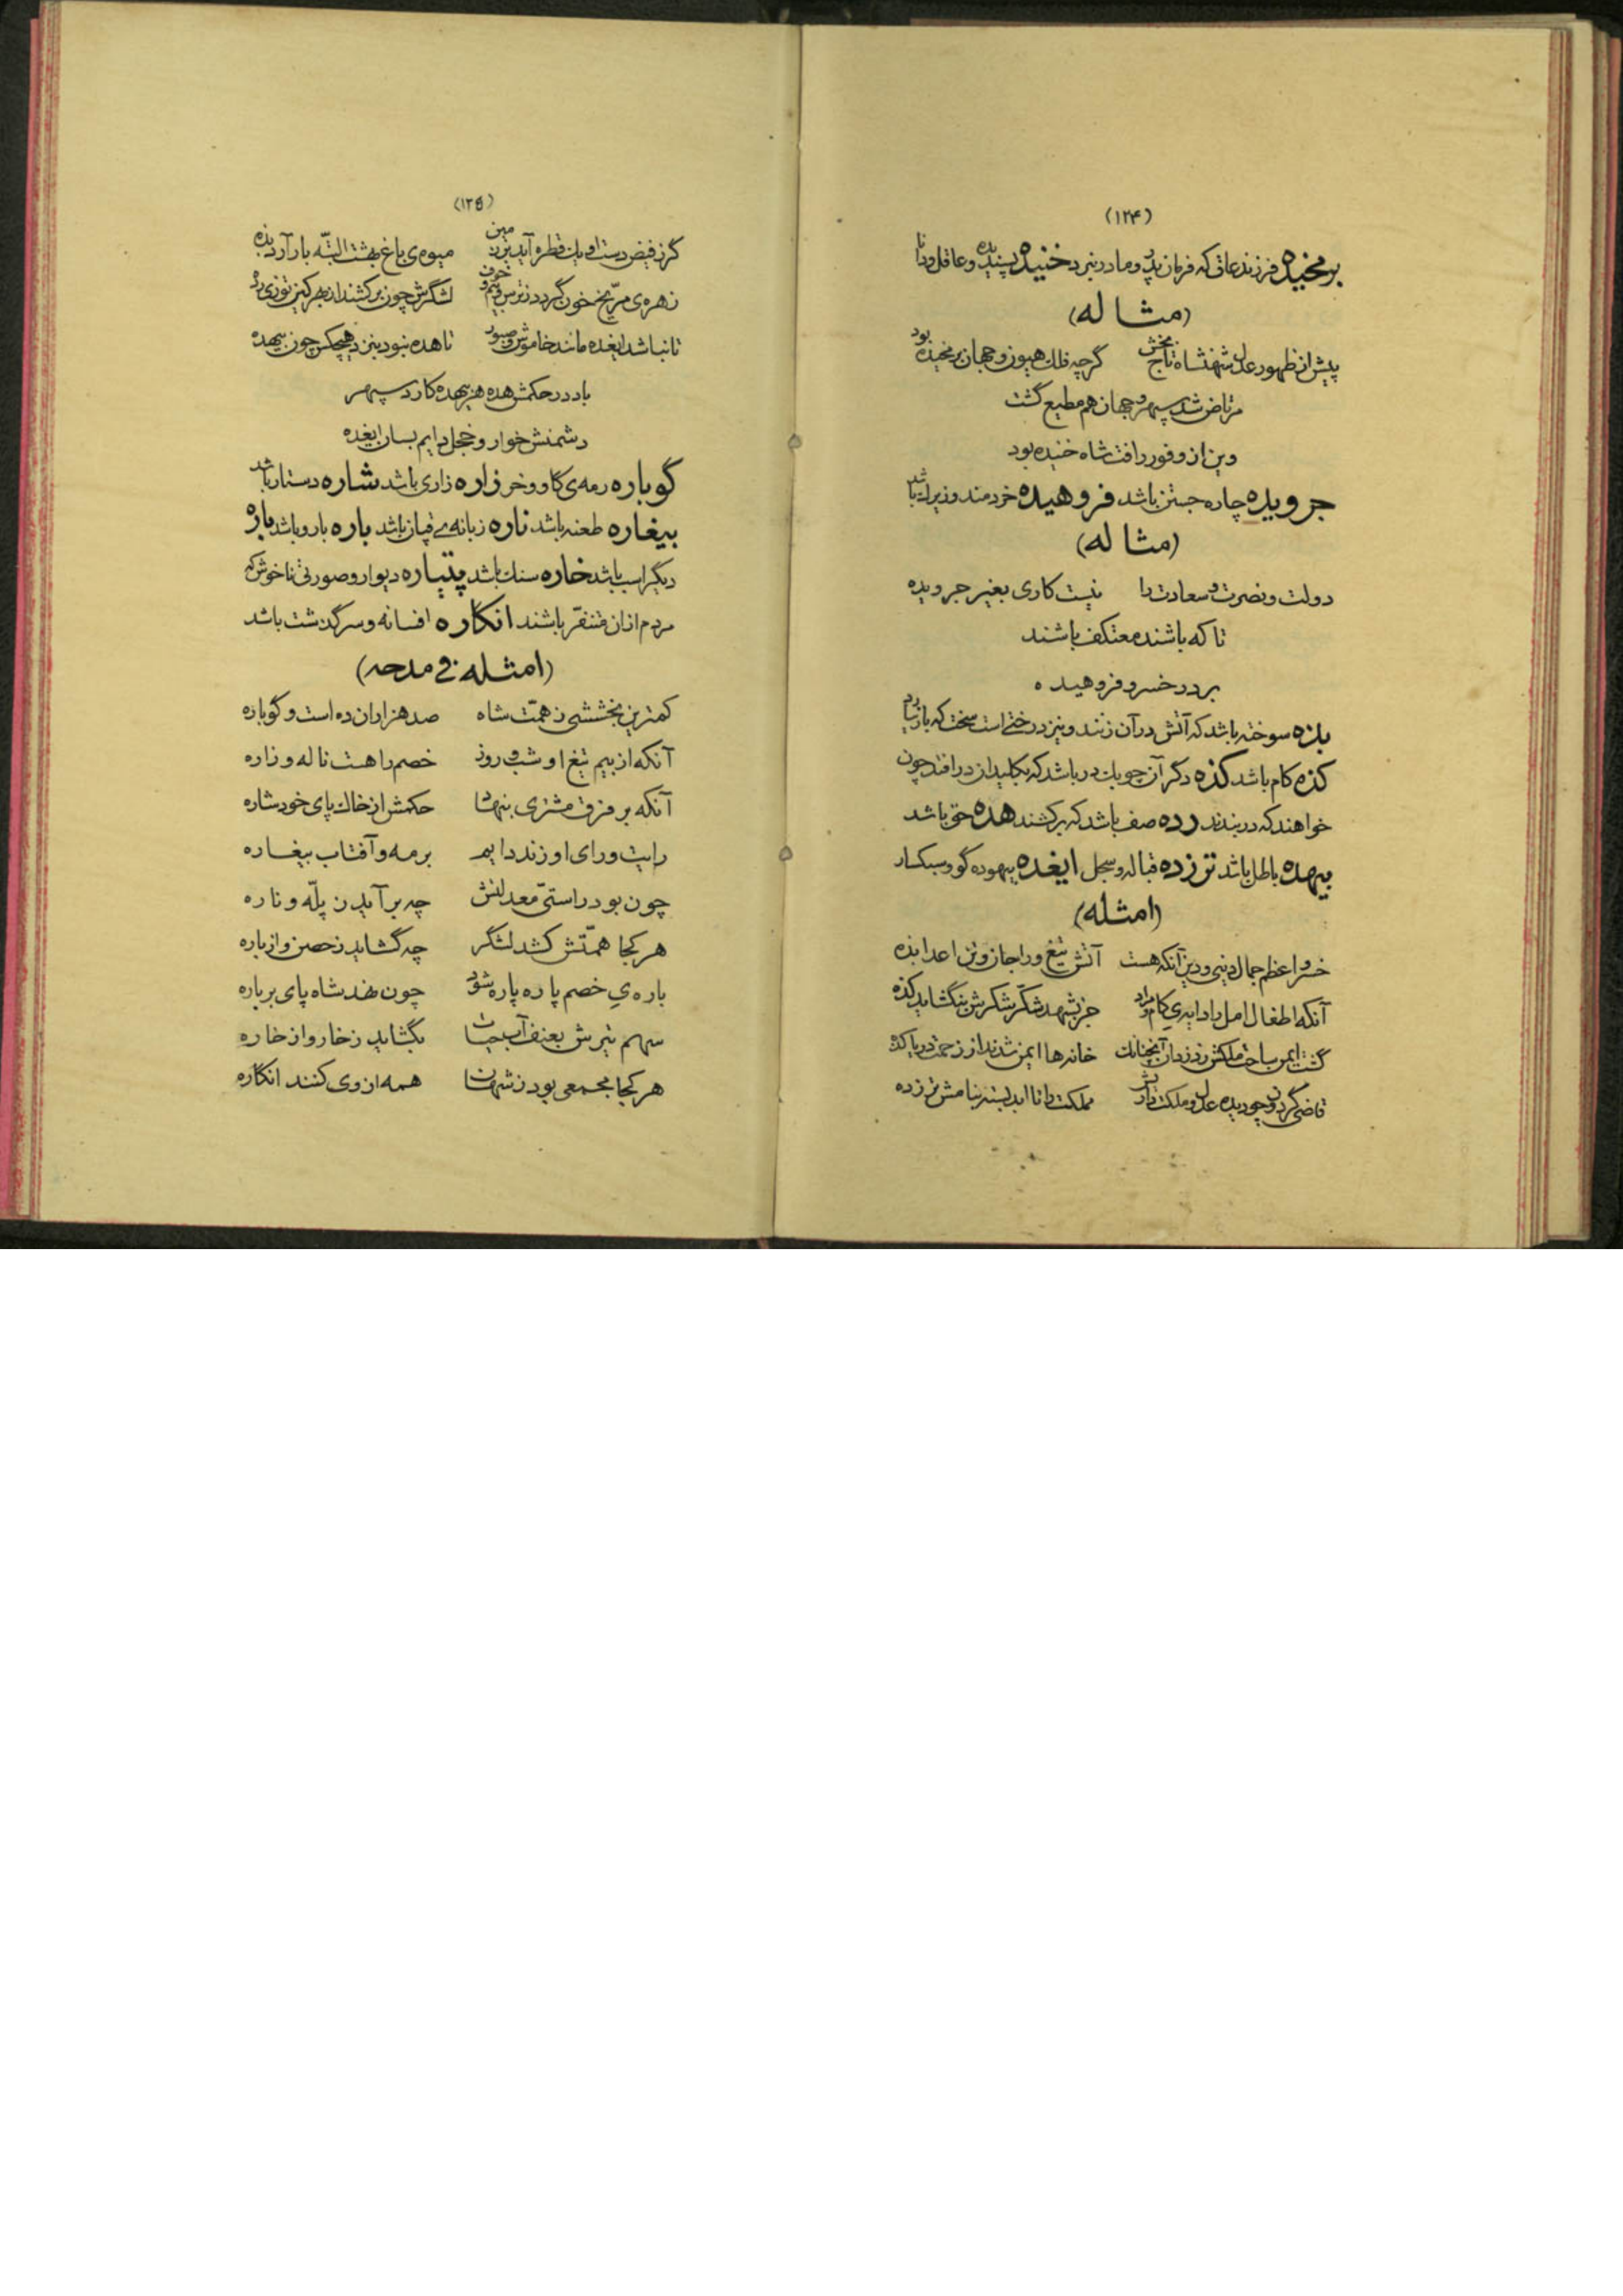 (۱۲۴)
برمخیده فرزند عاق که فرمان پدر و مادر نبرد خنیده پسندیده و عاقل و دانا
(مثاله)
پیش از ظهور عدل شهنشاه تاج بخش گرچه فلک هیون و جهان برمخیده بود
مرتاض شد سپهر و جهان هم مطیع گشت
وین از وفور رافت شاه خنیده بود
جرویده چاره جستن باشد فروهیده خردمند و زیرک باشد
(مثاله)
دولت و نصرت و سعادت را نیست کاری بغیر جرویده
تا که باشند معتکف باشند
بر در خسرو فروهیده
بذه سوخته باشد که آتش در آن زنند و نیز درختی است سخت که بار نیارد
کذه کام باشد کذه دگر آن چوبک در باشد که بکلیدان در افتد چون
خواهند که در بندند رده صف باشد که برکشند هده حق باشد
بیهده باطل باشد توزده قباله و سجل ایغده بیهوده گو و سبکسار
(امثله)
خسرو اعظم جمال دنیی و دین آنکه هست آتش تیغ ورا جان و تن اعدا بذه
آنکه اطفال امل را دایه‌ی کام و مراد جز بشهد شکر شکرش نگشاید کذه
گشت ایمن ساحت ملکش ز دزدان آنچنانک خانه‌ها ایمن شدند از زحمت در یا کذه
قاضی گردون چو دیده عدل و ملکت داریش مملکت را تا ابد بسته بنامش توزده
(۱۲۵)
گر ز فیض دست او یک قطره آید بر زمین میوه‌ی باغ بهشت البتّه بار آرد بذه
زهره‌ی مرّیخ خون گردد ز ترس و بیم و خوف لشگرش چون برکشند از بهر کین توزی رده
تا نباشد ایغده مانند خاموش و صبور تا هده نبود بنزد هیچکس چون بیهده
باد در حکمش هده هر بیهده کارد سپهر
دشمنش خوار و خجل دایم بسان ایغده
گوباره رمه‌ی گاو و خر زاره زاری باشد شاره دستار باشد
بیغاره طعنه باشد ناره زبانه‌ی قپان باشد باره بارو باشد باره
دیگر اسب باشد خاره سنک باشد پتیاره دیوار و صورتی ناخوش که
مردم از آن متنفّر باشند انگاره افسانه و سرگذشت باشد
(امثله فی مدحه)
کمترین بخششی ز همّت شاه صد هزاران ده است و گوباره
آنکه از بیم تیغ او شب و روز خصم را هست ناله و زاره
آنکه بر فرق مشتری بنهاد حکمش از خاک پای خود شاره
رایت و رای او زند دایم بر مه و آفتاب بیغاره
چون بود راستیّ معدلتش چه برآید ز پلّه و ناره
هر کجا همّتش کشد لشگر چه گشاید ز حصن و از باره
باره‌ی خصم پاره پاره شود چون نهد شاه پای بر باره
سهم تیرش بعنف آب حیات بگشاید ز خار و از خاره
هر کجا مجمعی بود ز شهان همه از وی کنند انگاره